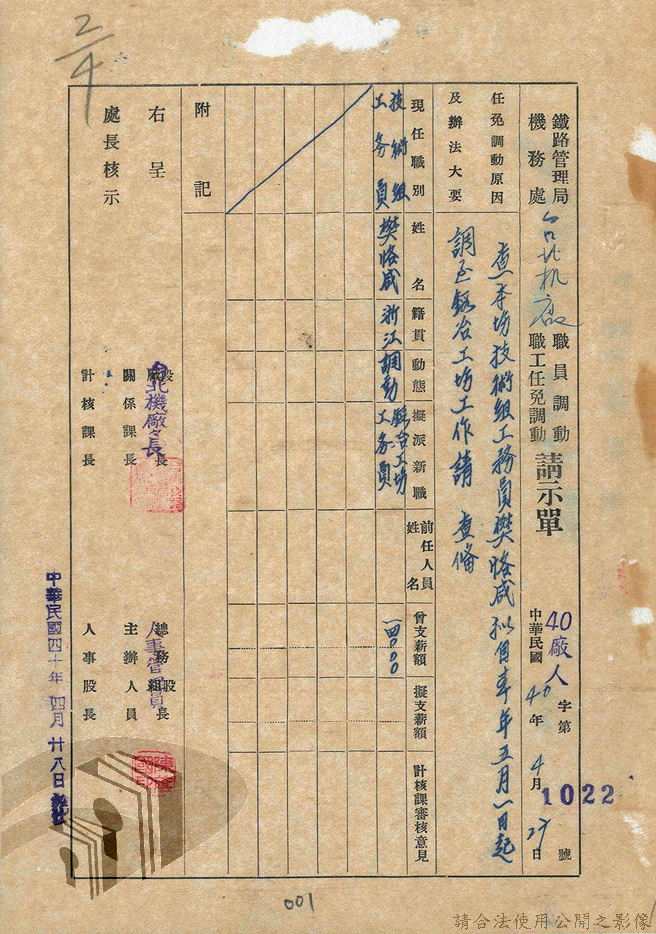 2/4
鐵路管理局
機務處
台北机廠
職員調動
職工任免調動
請示單
40廠人字第1022號
中華民國40年4月27日
任免調動原因
及辦法大要
查本場技術組工務員樊恪咸擬自本年五月一日起
調至鎔冶工場工作請 查備
現任職別
姓名
籍貫
動態
擬派新職
前任人員
姓名
曾支薪額
擬支薪額
計核課審核意見
技術組
工務員
樊恪咸
浙江
調動
鎔冶工場
工務員
附記
右呈
處長核示
台北機廠廠長
總務股長
人事管理員
關係課長
主辦人員
計核課長
人事股長
中華民國四十年四月廿八日
001
請合法使用公開之影像